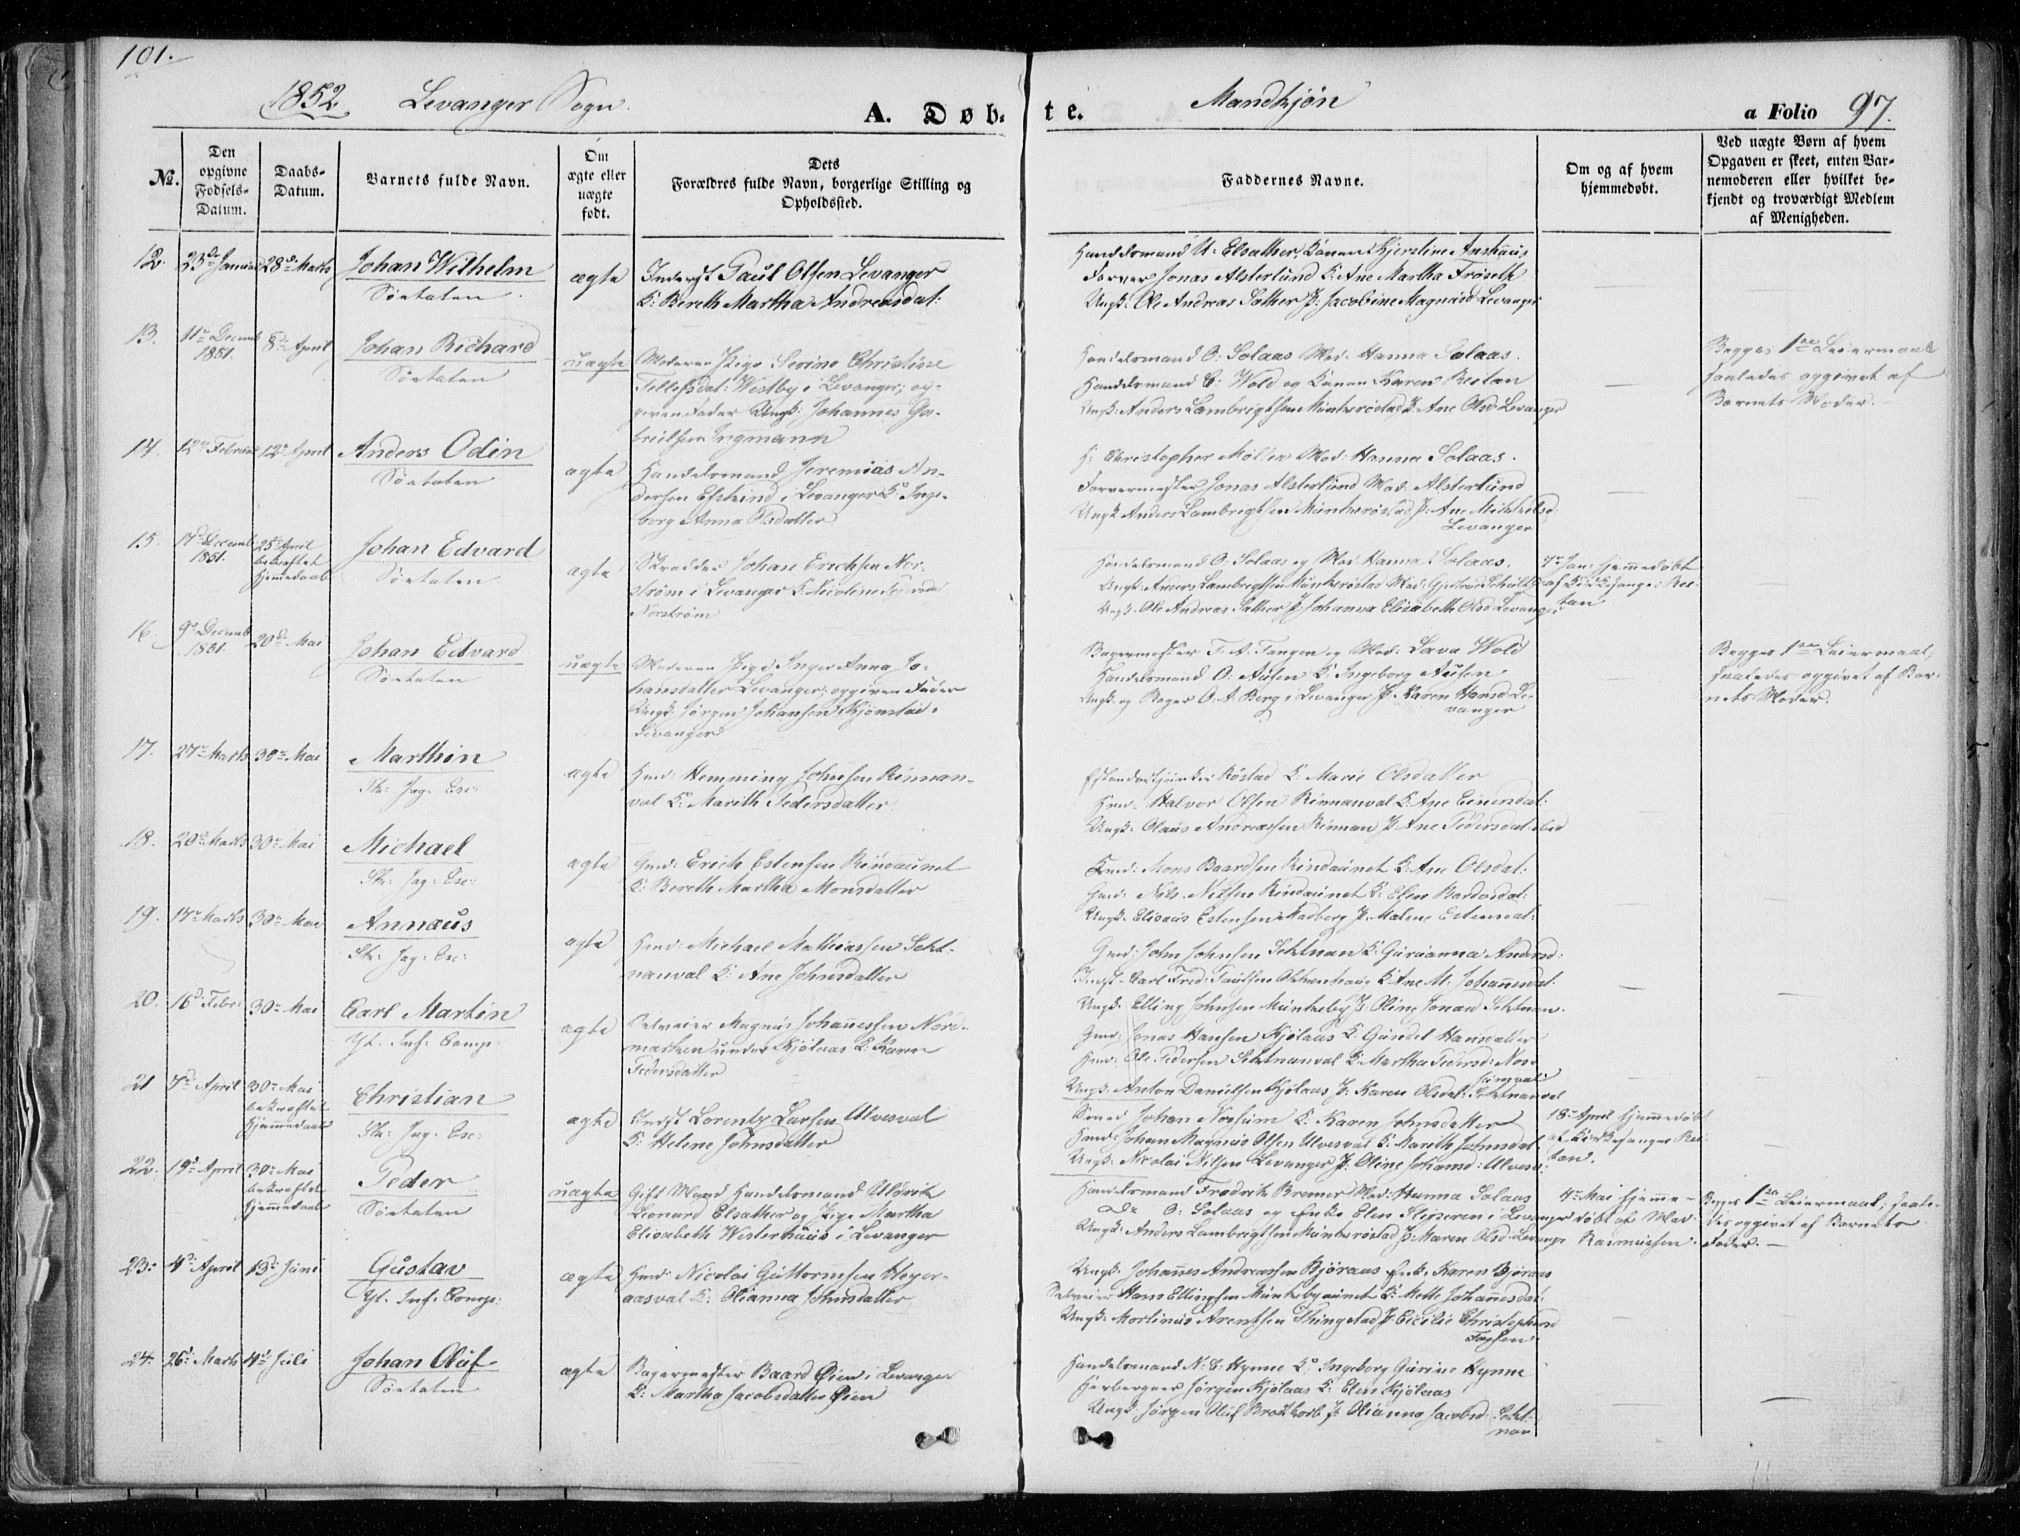 101.
1852 Levanger Sogn.
A. Døb-
te.
Mandkjøn
a Folio 97.
No.
Den opgivne Fødsels-Datum.
Daabs-Datum.
Barnets fulde Navn.
Om ægte eller uægte født.
Dets Forældres fulde Navn, borgerlige Stilling og Opholdssted.
Faddernes Navne.
Om og af hvem hjemmedøbt.
Ved uægte Børn af hvem Opgaven er skeet, enten Barnemoderen eller hvilket bekjendt og troværdigt Medlem af Menigheden.
12. 23de Januar 28de Marts Johan Wilhelm
Söetaten
ægte
Inderst Paul Olsen Levanger
K: Bereth Martha Andreasdat:
Handelsmand U. Elsather, Konen Kjerstine
Farver Jonas Alsterlund K: Ane Martha Fröseth
Ungk: Ole Andreas Sather P: Jacobine Levanger
13. 11te Decemb 1851. 8de April Johan Richard
Söetaten
uægte
Moderen Pige Serine Christine
Tellefsdat: Westby i Levanger, op-
given Fader Ungk: Johannes Ga-
brielsen Ingmann
Handelsmand O. Solaas Mad: Hanna Solaas.
Handelsmand C: Wold og Konen Karen Reitan
Ungk: Anders Lambrigtsen Munkeröstad P: Ane Olsd: Levanger
Begges 1ste Leiermaal
saaledes opgivet af
Barnets Moder.
14. 12te Februar 12te April Anders Odin
Söetaten
ægte
Handelsmand Jeremias An-
dersen Elstrind i Levanger K: Inge-
borg Anna Olsdatter
H: Christopher Möller Mad: Hanna Solaas.
Farvermester Jonas Alsterlund Mad: Alsterlund
Ungk: Anders Lambrigtsen Munkeröstad P: Ane
Levanger
15. Decemb 1851. 25de April bekræftet Hjemmedaab
Johan Edvard
Söetaten
ægte
Skrædder Johan Erichsen Nor-
ström i Levanger K: Nicoline
Norström
Handelsmand O. Solaas og Mad: Hanna Solaas.
Ungk: Anders Lambrigtsen Munkeröstad Mad:
Ungk: Ole Andreas Sather P: Johanna Elisabeth Olsd: Levanger
Jan: hjemmedøbt
af Kirkesanger Rei-
tan
16. 9de Decemb 1851. 20de Mai Johan Edvard
Söetaten
uægte
Moderen Pige Inger Anna Jo-
hansdatter Levanger, opgiven Fader
Ungk: Jörgen Johansen Kjönstad
Levanger
Bagermester T. A. Tangen og Mad: Lava Wold
Handelsmand O. Ausen K: Ingeborg Ausen
Ungk: og Bager O. A. Berg i Levanger P: Karen Hansd: Le-
vanger
Begges 1ste Leiermaal,
saaledes opgivet af Bar-
nets Moder.
17. 27de Marts 30te Mai Marthin
Str: Jag: Esc:
ægte
Hmd: Hemming Johnsen Rinnan-
val K: Marith Pedersdatter
Röstad K: Marie Olsdatter
Hmd: Halvor Olsen Rinnanval K: Ane Einersdat:
Ungk: Olaus Andreassen Rinnan P: Ane Pedersdat: ibid
18. 20de Marts 30te Mai Michael
Str: Jag: Esc:
ægte
Gmd: Erich Estensen Rindaunet
K: Bereth Martha Monsdatter
Gmd: Mons Baardsen Rindaunet K: Ane Olsdat:
Gmd: Nels Nilsen Rindaunet K: Elen Bardosdat:
Ungk: Elisaus Estensen P: Malene Estensdat:
19. Marts 30te Mai Annæus
Str: Jag: Esc:
ægte
Hmd: Michael Mathiassen Sekt-
nanval K: Ane Johnsdatter
Gmd: John Johnsen Sektnan K: Guruanna Andrsd:
Inds: Carl Fred: Paulsen K: Ane M: Johannesdat:
Ungk: Elling Johnsen Munkeby P: Oline Jonasd: Sektnan.
20. 16de Febr: 30te Mai Carl Martin
Yt. Inf: Comp:
ægte
Selveier Magnus Johannessen Nord-
marken under Kjölaas K: Karen
Pedersdatter
Gmd: Jonas Hansen Kjölaas K: Gundel Hansdatter
Hmd: Ole Pedersen Sektnanval K: Martha Pedersd:
Ungk: Anton Danielsen Kjölaas P: Karen Olsdat: Sektnanval
21 7de April 30te Mai bekræftet Hjemmedaab
Christian
Str: Jag: Esc:
ægte
Indst Lorents Larsen Ulvesval
K: Helene Johnsdatter
Johan Nossum K: Karen Johnsdatter
Hmd: Johan Magnus Olsen Ulvesval K: Marith Johnsdat
Ungk: Nicolai Nilsen Levanger P: Oline Johansd: Ulvesv:
18de April hjemmedøbt
af Kirkesanger Rei-
tan.
22. 19de April 30te Mai bekræftet Hjemmedaab
Peder
Söetaten
uægte
Gift Mand Handelsmand Ulörik
Leonard Elsather og Pige Martha
Elisabeth Westerhuus i Levanger
Handelsmand Fredrik Bremer Mad: Hanna Solaas
Do O: Solaas og Enke Elen i Levanger
Ungk: Anders Lambrigtsen Munkeröstad P: Maren Olsd: Levanger
4de Mai hjemme-
døbt af Mad:
Rasmussen.
Begges 1ste Leiermaal, saale-
des opgivet af Barnets
Fader.
23. 4de April 13de Juni Gustav
Yt. Inf: Comp:
ægte
Hmd: Nicolai Guttormsen Heger-
aasval K: Olianna Johnsdatter
Ungk: Johannes Andreassen Björaas Enk: Karen Björaas
Selveier Hans Ellingsen Munkebyaunet K: Mette Johannesdat:
Ungk: Mortinus Arentsen Thingstad P: Cicilie Christophersd
24. 26de Marts 4de Juli Johan Oluf
Söetaten
ægte
Bagermester Baard Öien i Levanger
K: Martha Jacobsdatter Öien
Handelsmand N. S. Hynne K: Ingeborg Gurine Hynne
Herbergeer Jörgen Kjölaas K: Elen Kjölaas
Ungk: Jörgen Oluf P: Olianna Jacobsd: Sekt-
nan